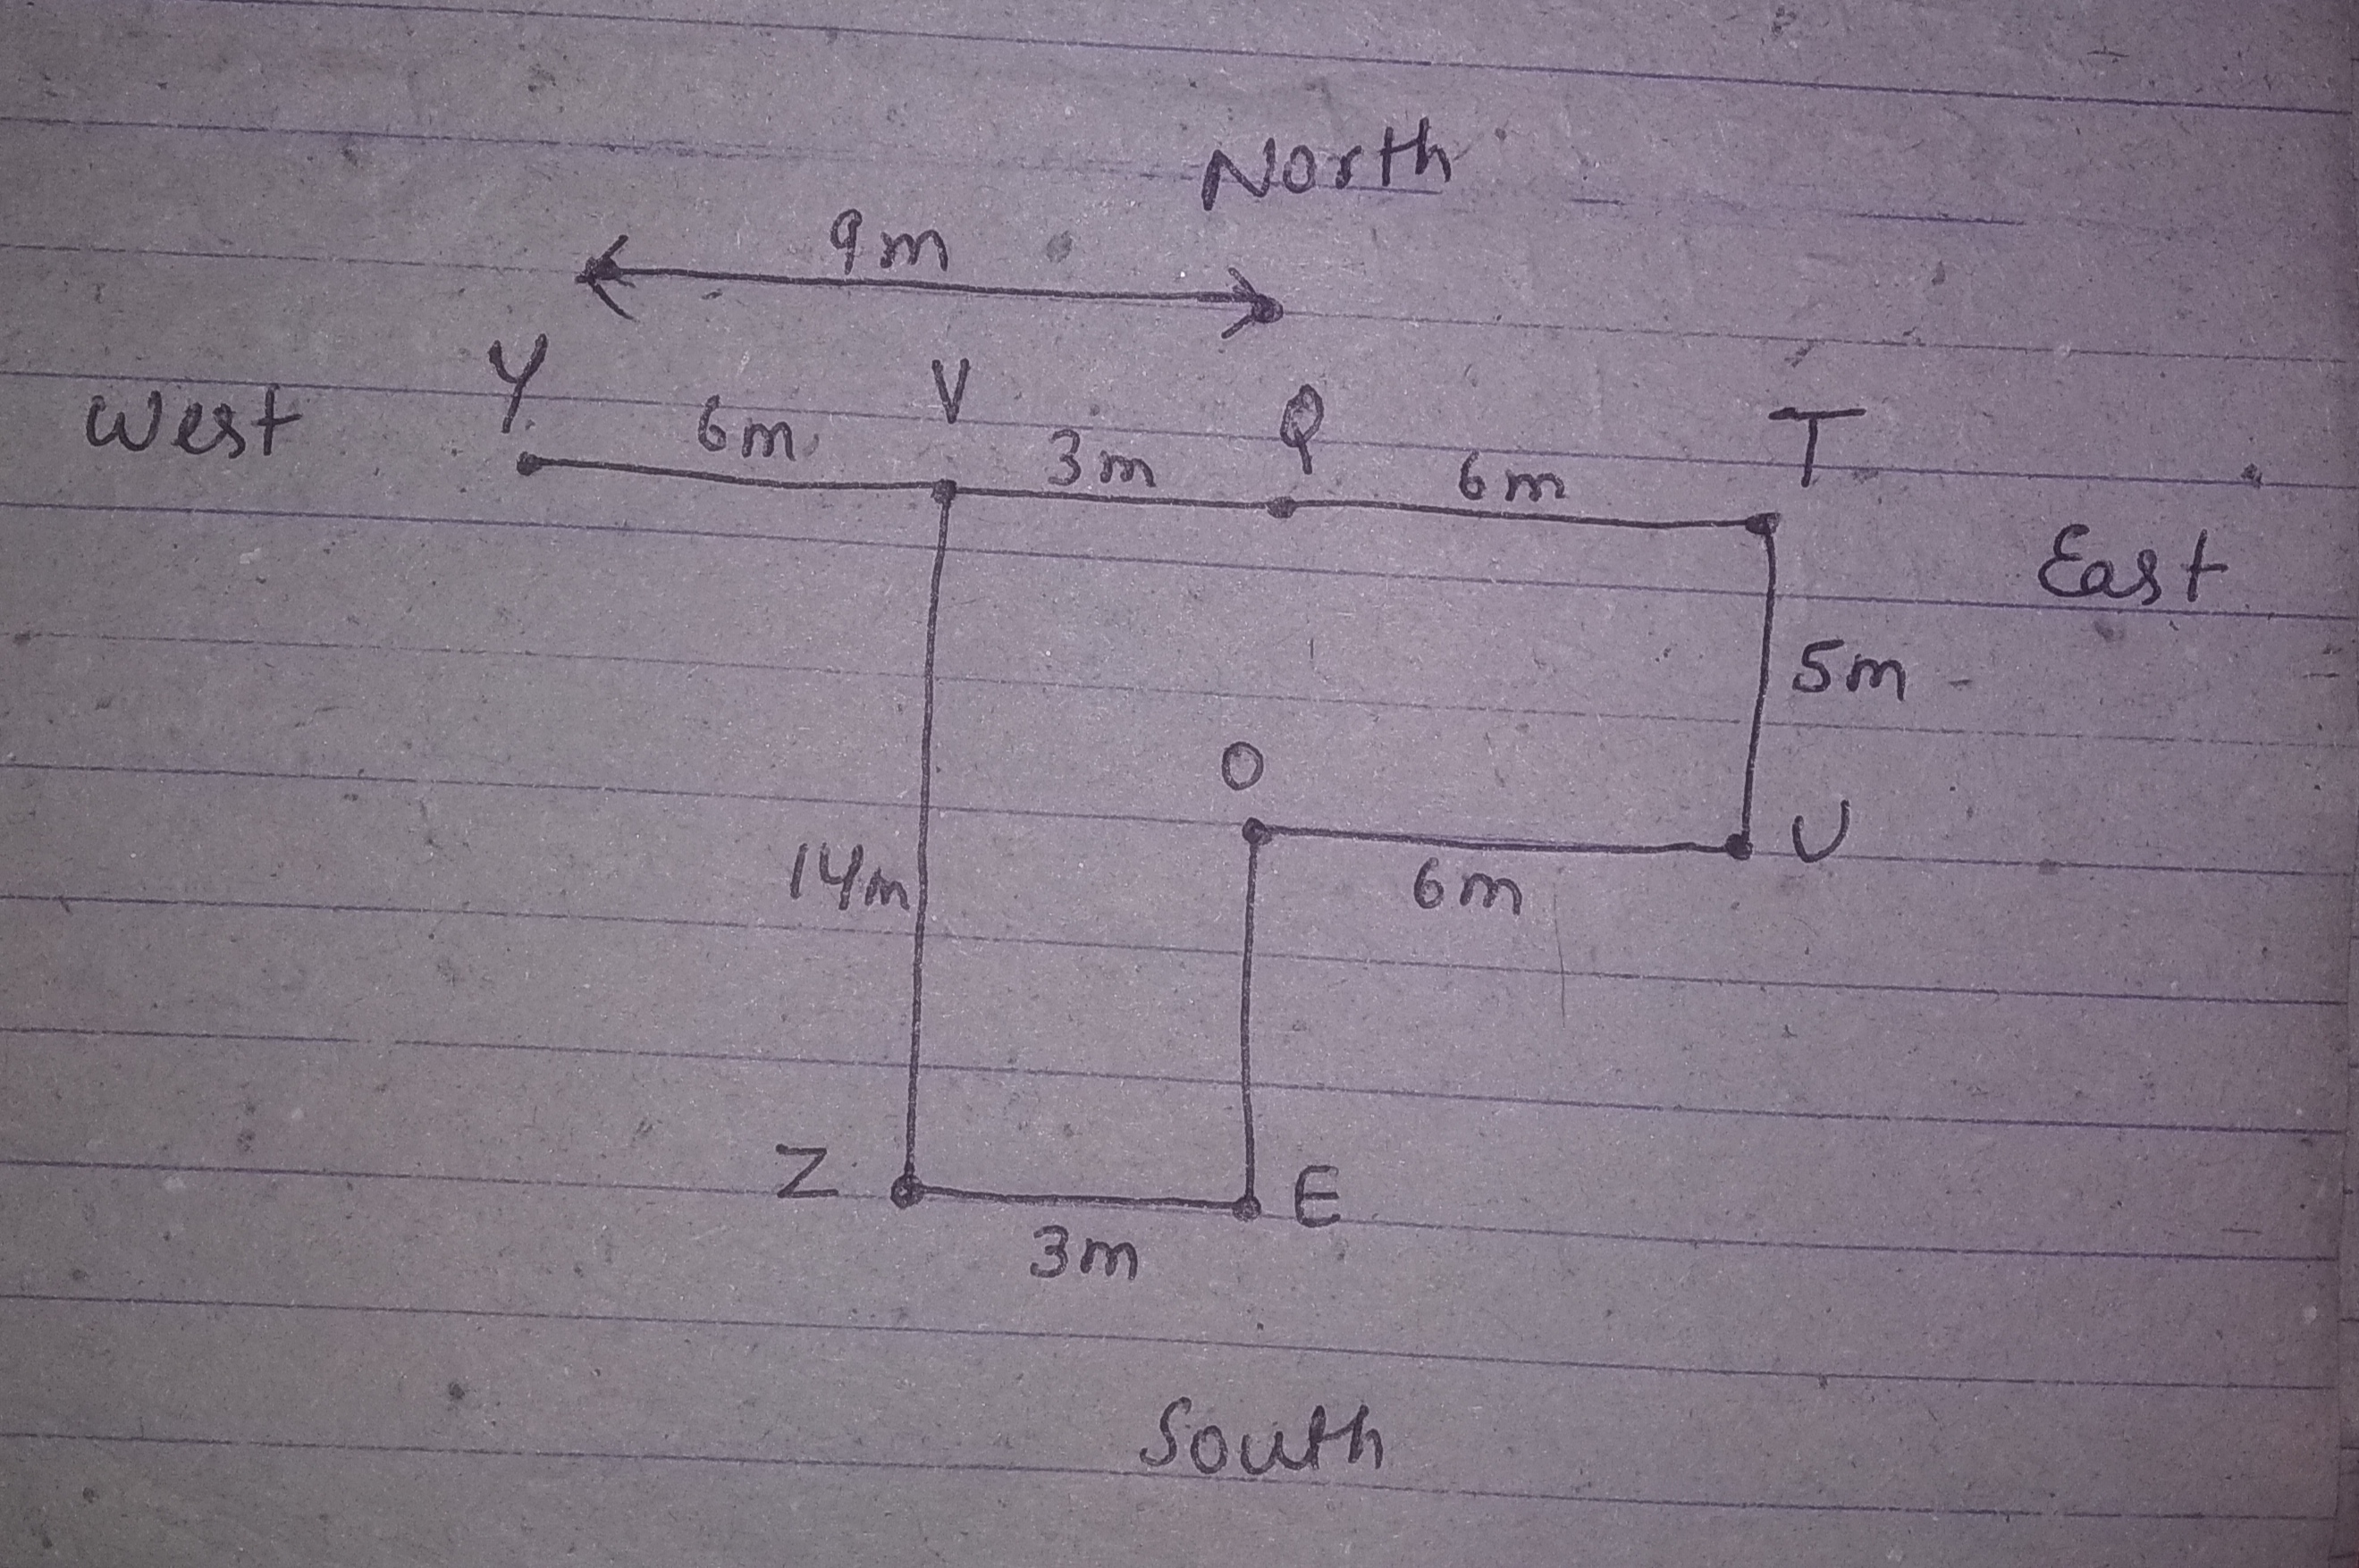 North
9m
Y V Q T
West 6m 3m 6m
East
5m
O
U
14m 6m
Z E
3m
South